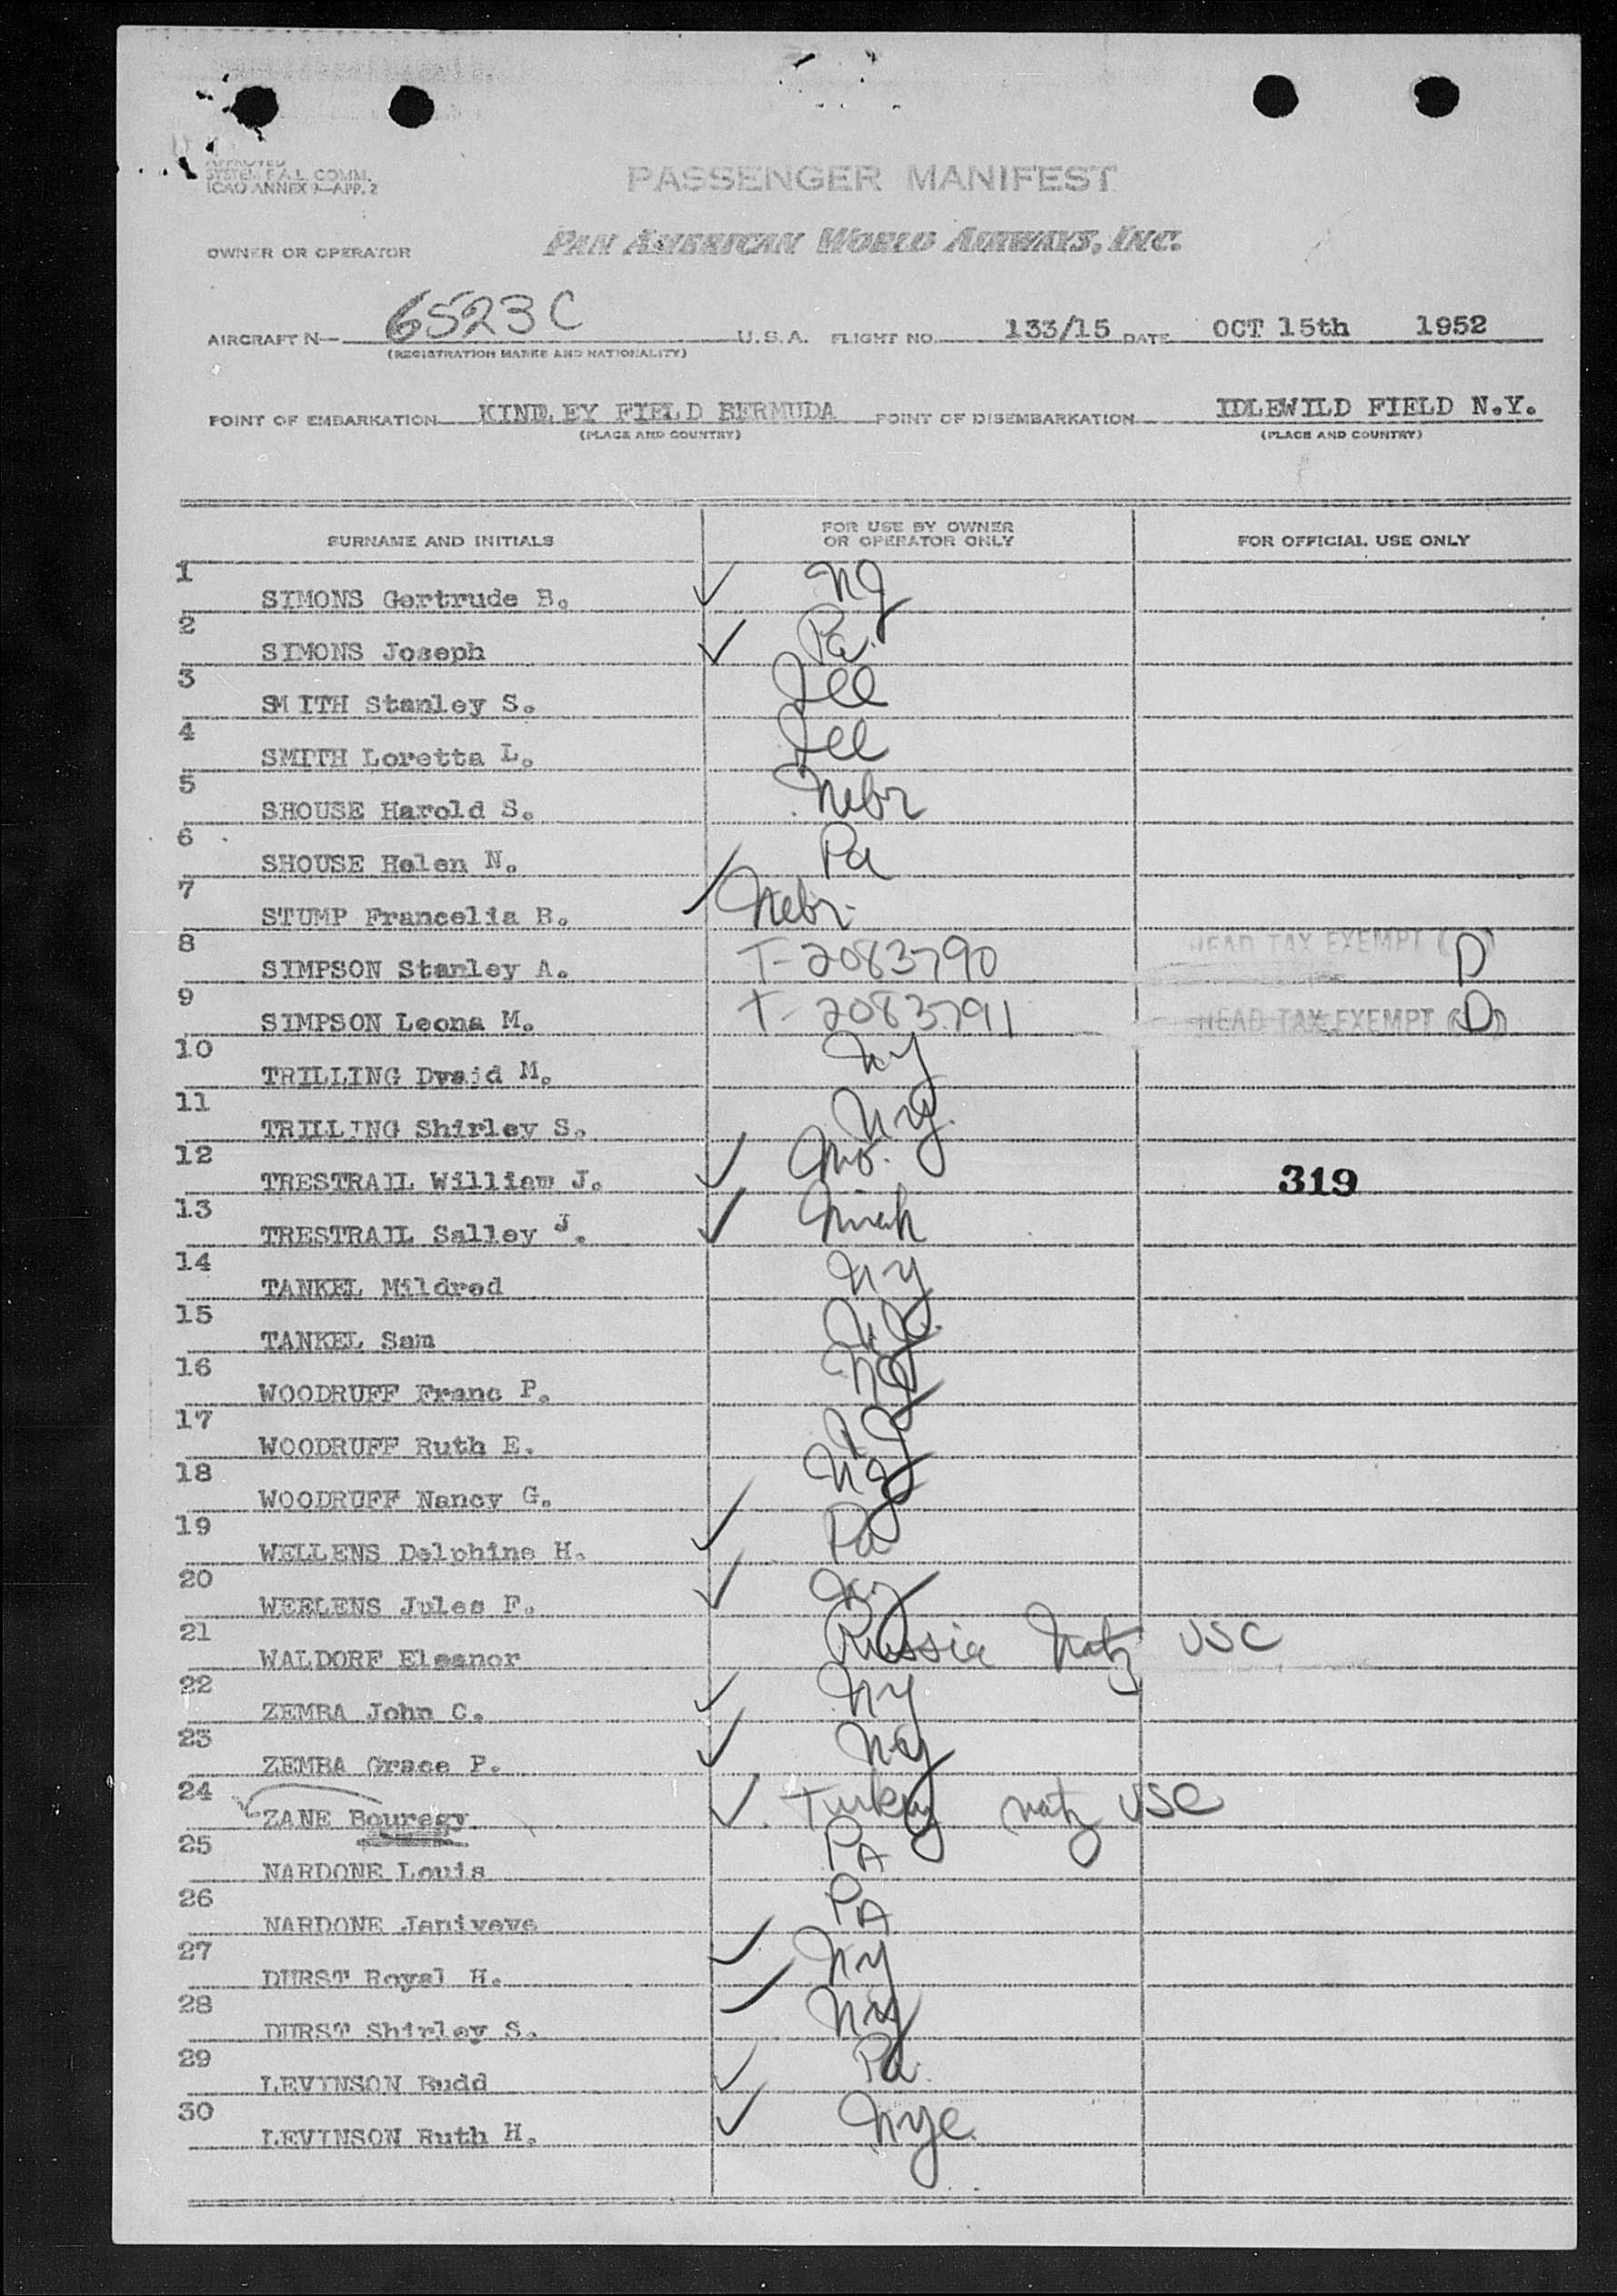 APPROVED
SYSTEM F.A.L. COMM.
ICAO ANNEX 9—APP. 2
PASSENGER MANIFEST
OWNER OR OPERATOR PAN AMERICAN WORLD AIRWAYS, INC.
AIRCRAFT N— 6523C U.S.A. FLIGHT NO. 133/15 DATE OCT 15th 1952
(REGISTRATION MARKS AND NATIONALITY)
POINT OF EMBARKATION KINDLEY FIELD BERMUDA POINT OF DISEMBARKATION IDLEWILD FIELD N.Y.
(PLACE AND COUNTRY) (PLACE AND COUNTRY)
SURNAME AND INITIALS FOR USE BY OWNER OR OPERATOR ONLY FOR OFFICIAL USE ONLY
1 SIMONS Gertrude B. ✓ NJ
2 SIMONS Joseph ✓ Pa.
3 SM ITH Stanley S. Ill
4 SMITH Loretta L. Ill
5 SHOUSE Harold S. Nebr
6 SHOUSE Helen N. Pa
7 STUMP Francelia B. ✓ Nebr.
8 SIMPSON Stanley A. T-2083790 HEAD TAX EXEMPT (D)
9 SIMPSON Leona M. T-2083791 HEAD TAX EXEMPT (D)
10 TRILLING Dvaid M. NY
11 TRILLING Shirley S. NY.
12 TRESTRAIL William J. ✓ Mo. 319
13 TRESTRAIL Salley J. ✓ Mich
14 TANKEL Mildred NY
15 TANKEL Sam
16 WOODRUFF Franc P. NJ
17 WOODRUFF Ruth E. NJ
18 WOODRUFF Nancy G. NJ
19 WELLENS Delphine H. ✓ Pa
20 WEELENS Jules F. ✓
21 WALDORF Eleanor Russia Natz USC
22 ZEMBA John C. ✓ NY
23 ZEMBA Grace P. ✓ NY
24 ZANE Bouregy ✓ Turkey natz USC
25 NARDONE Louis PA
26 NARDONE Janiveve PA
27 DURST Royal H. ✓ NY
28 DURST Shirley S. ✓ NY
29 LEVINSON Budd ✓ Pa.
30 LEVINSON Ruth H. ✓ NYC